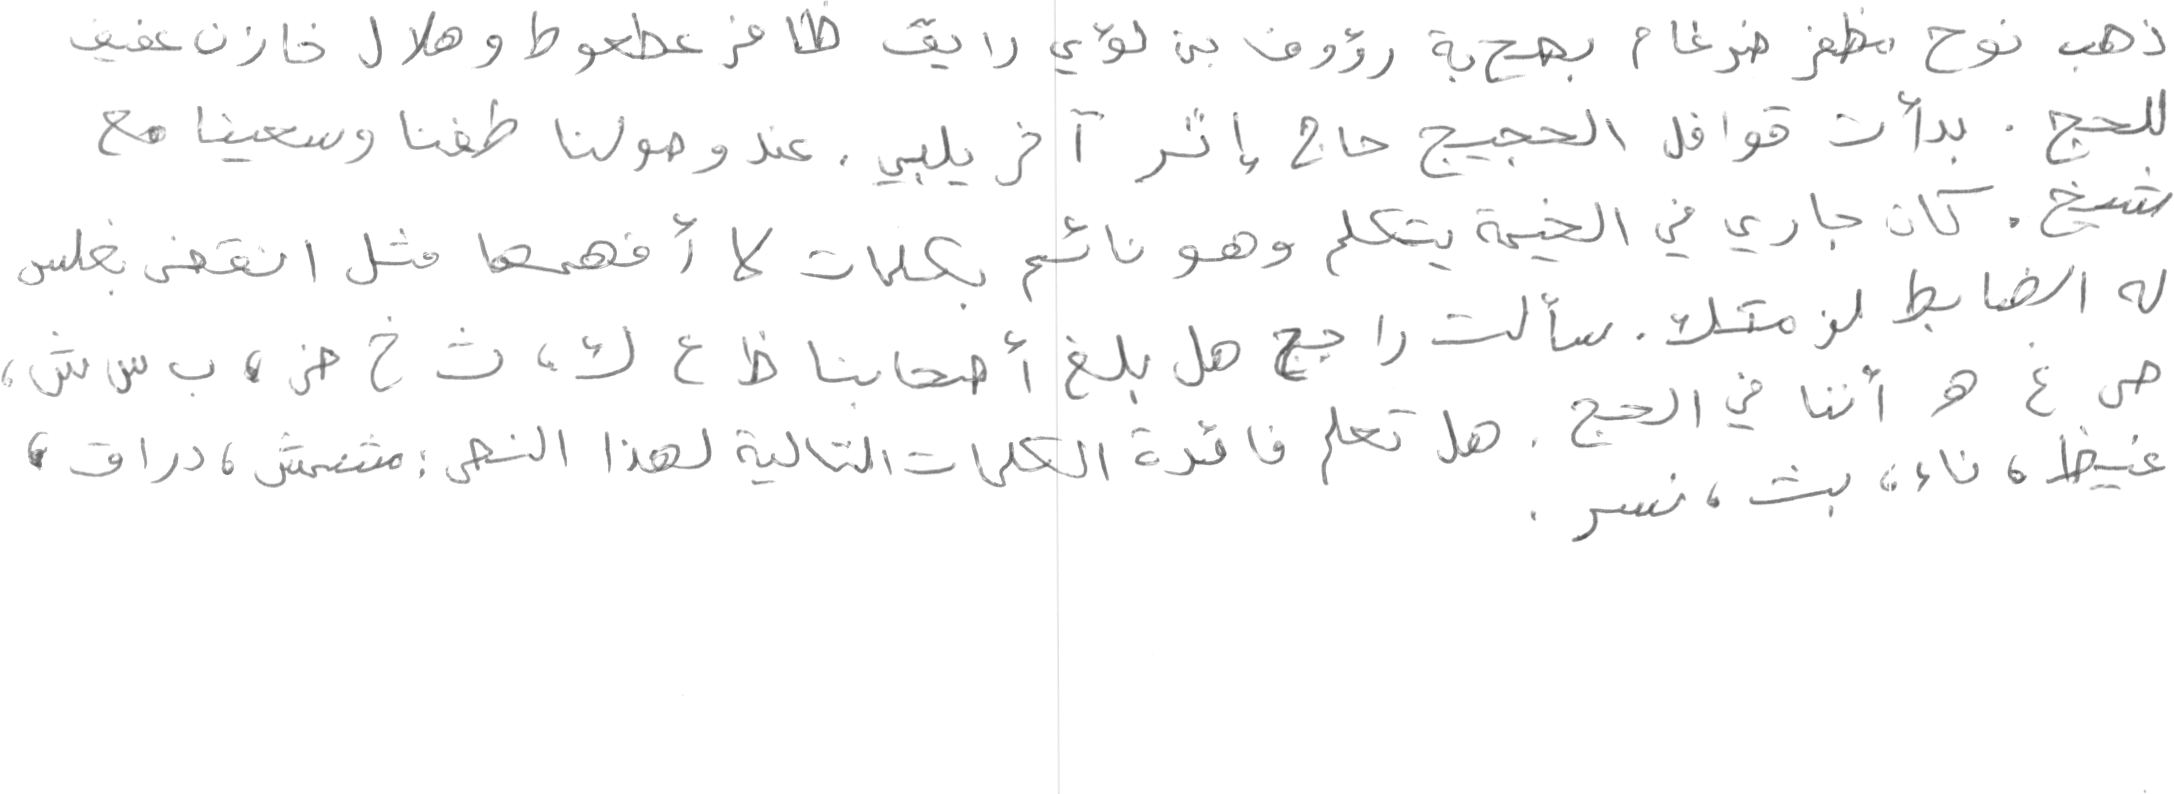 ذهب نوح مظفر ضرغام بصحبة رؤوف بن لؤي رايق ظافر عطعوط وهلال خازن عفيف
للحج . بدأت قوافل الحجيج حاج إثر آخر يلبي . عند وصولنا طفنا وسعينا مع
شيخ . كان جاري في الخيمة يتكلم وهو نائم بكلمات لا أفهمها مثل انقض بغلس
له الضابط لز متك . سألت راجح هل بلغ أصحابنا ظ ع ك ، ث خ ض ، ب س ش ،
ص غ ه أننا في الحج . هل تعلم فائدة الكلمات التالية لهذا النص : مشمش ، دراق ،
غيظ ، ناء ، بث ، نسر .